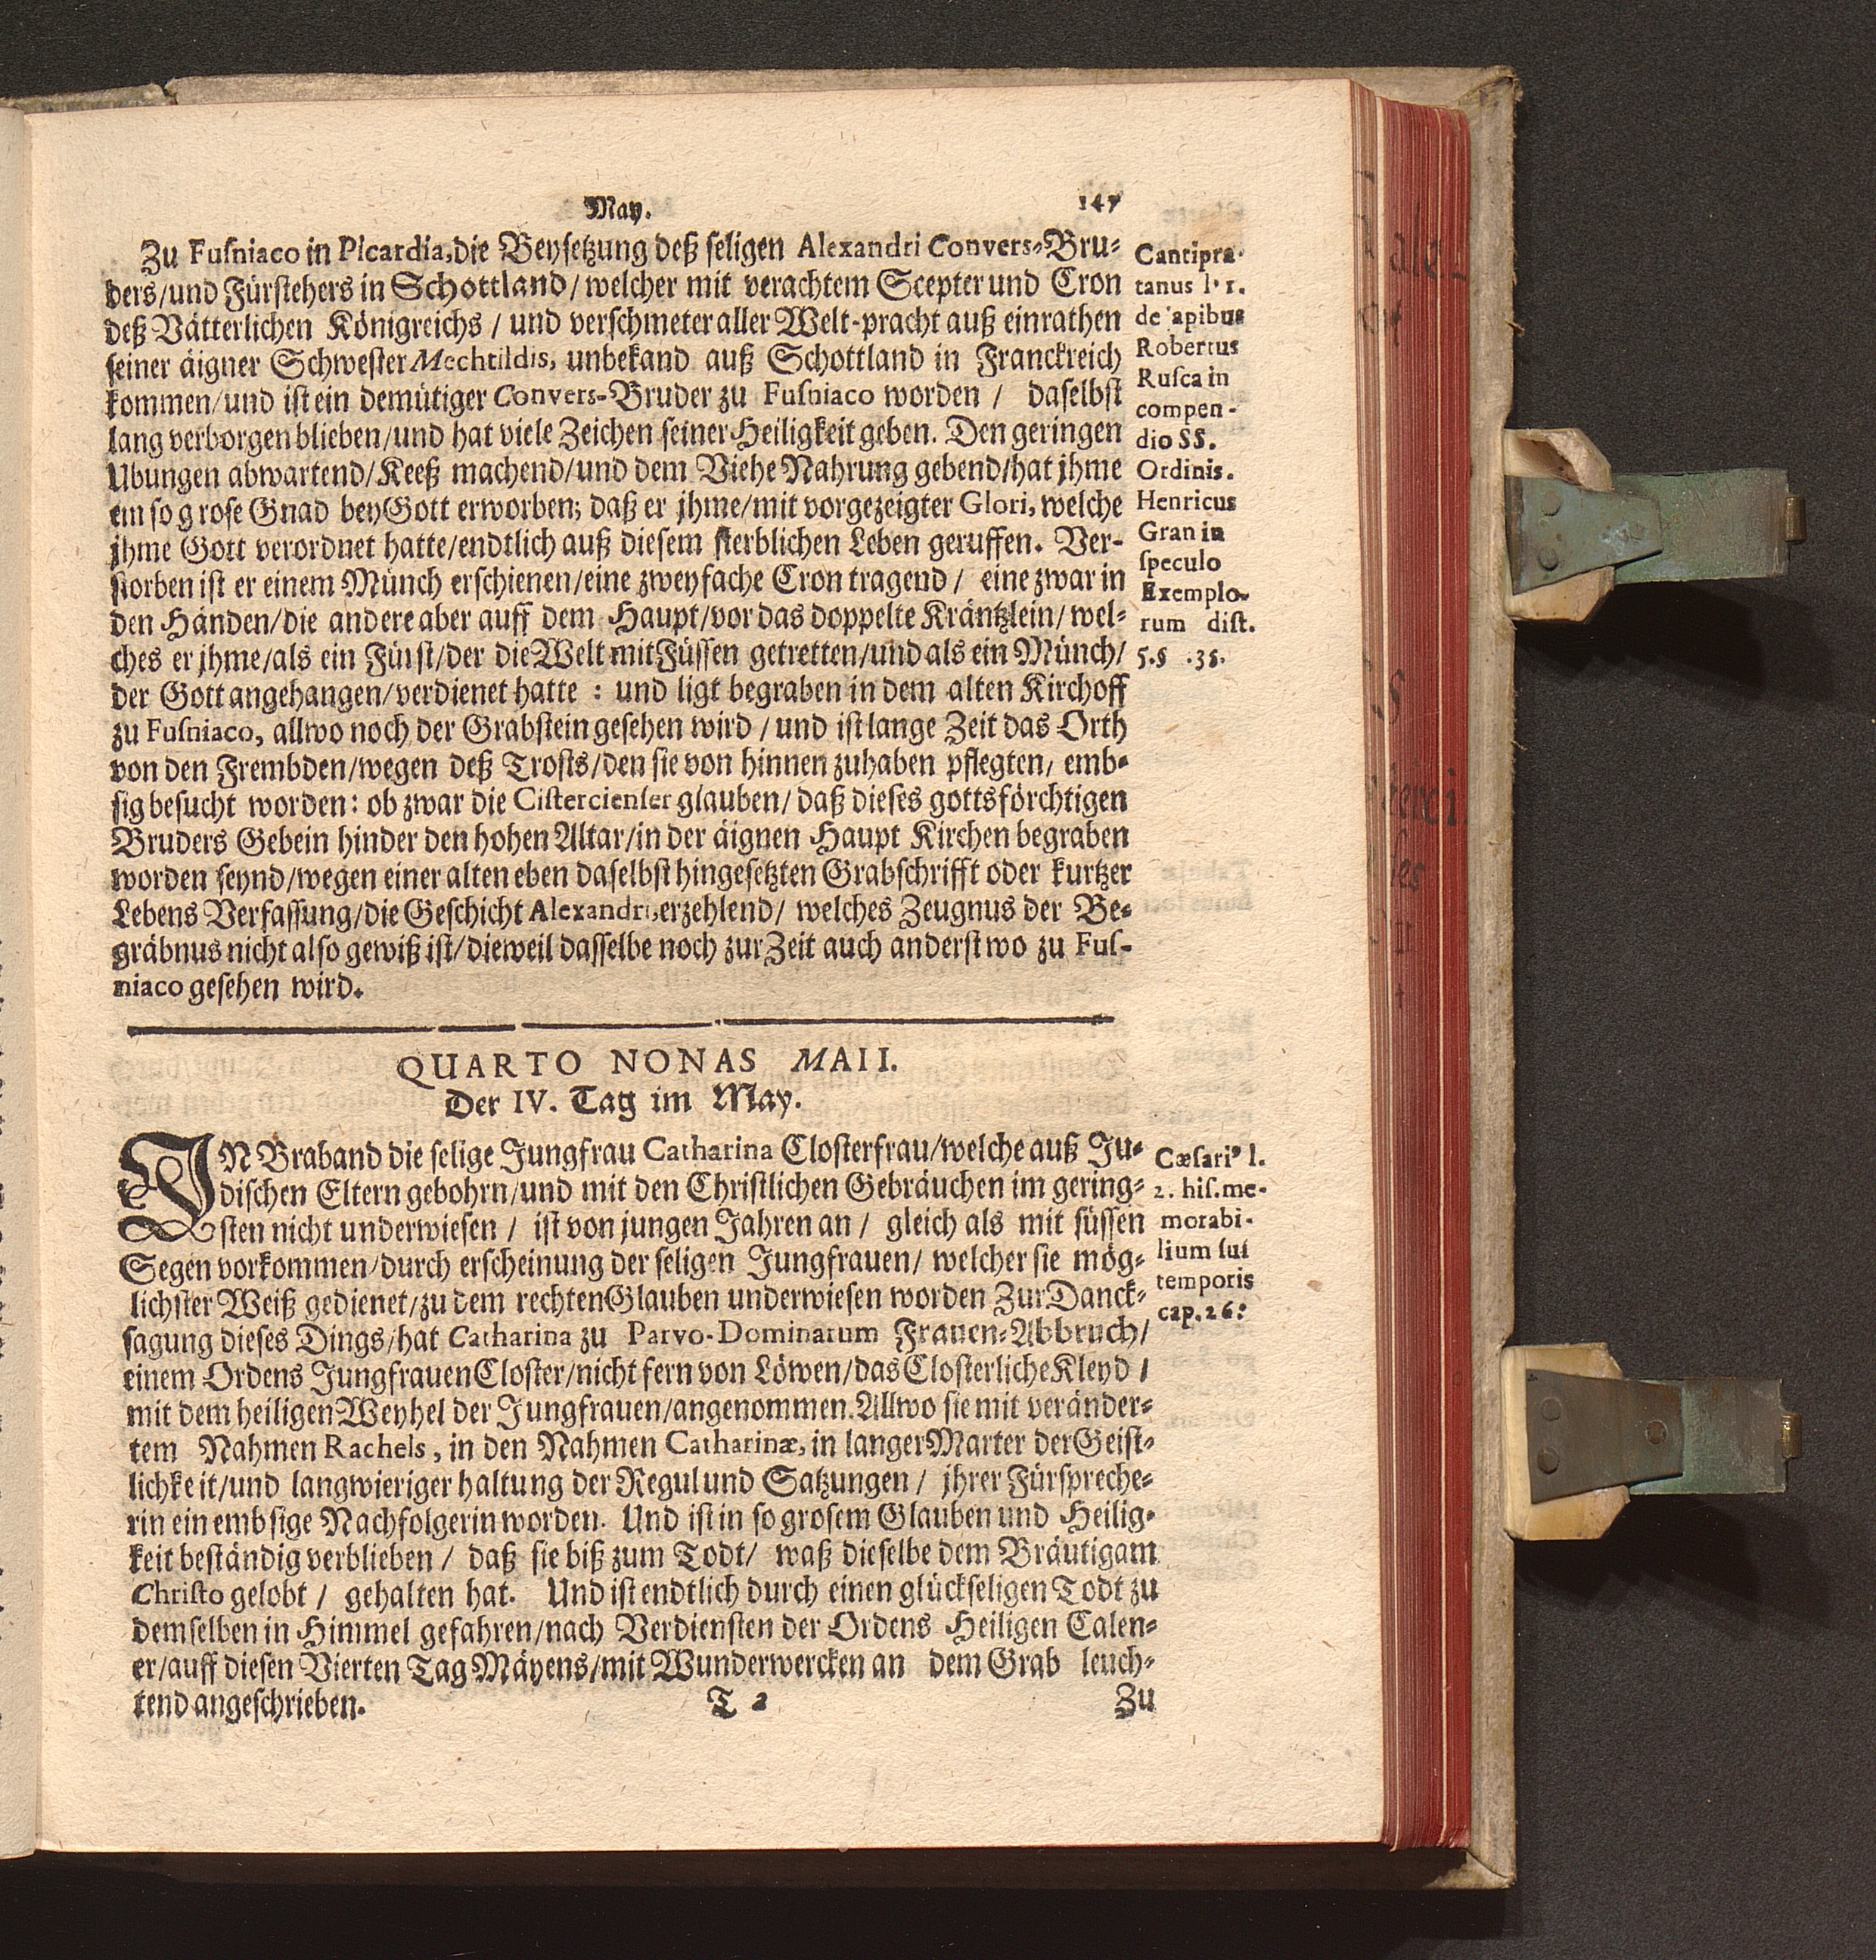 May.
147
Zu Fuſniaco in Picardia, die Beyſetzung deß ſeligen Alexandri Convers-Bru-
ders/und Fürſtehers in Schottland/welcher mit verachtem Scepter und Cron
deß Vätterlichen Königreichs / und verſchmeter aller Welt-pracht auß einrathen
ſeiner äigner Schweſter Mechtildis, unbekand auß Schottland in Franckreich
kommen/und iſt ein demütiger Convers-Bruder zu Fuſniaco worden / daſelbſt
lang verborgen blieben/und hat viele Zeichen ſeiner Heiligkeit geben. Den geringen
Ubungen abwartend/Keeß machend/und dem Viehe Nahrung gebend/hat jhme
ein ſo groſe Gnad bey Gott erworben; daß er jhme/mit vorgezeigter Glori, welche
jhme Gott verordnet hatte/endtlich auß dieſem ſterblichen Leben geruffen. Ver-
ſtorben iſt er einem Münch erſchienen/eine zweyfache Cron tragend / eine zwar in
den Händen/die andere aber auff dem Haupt/vor das doppelte Kräntzlein/wel-
ches er jhme/als ein Fürſt/der die Welt mit Füſſen getretten/und als ein Münch/
der Gott angehangen/verdienet hatte : und ligt begraben in dem alten Kirchoff
zu Fuſniaco, allwo noch der Grabſtein geſehen wird / und iſt lange Zeit das Orth
von den Frembden/wegen deß Troſts/den ſie von hinnen zuhaben pflegten/ emb-
ſig beſucht worden: ob zwar die Ciſtercienſer glauben/ daß dieſes gottsförchtigen
Bruders Gebein hinder den hohen Altar/in der äignen Haupt Kirchen begraben
worden ſeynd/wegen einer alten eben daſelbſt hingeſetzten Grabſchrifft oder kurtzer
Lebens Verfaſſung/die Geſchicht Alexandri, erzehlend/ welches Zeugnus der Be-
gräbnus nicht alſo gewiß iſt/dieweil daſſelbe noch zur Zeit auch anderſtwo zu Fuſ-
niaco geſehen wird.
Cantipra-
tanus l. 1.
de apibus
Robertus
Ruſca in
compen-
dio SS.
Ordinis.
Henricus
Gran in
ſpeculo
Exemplo-
rum diſt.
5.§ .35.
QUARTO NONAS MAII.
Der IV. Tag im May.
IN Braband die ſelige Jungfrau Catharina Cloſterfrau/welche auß Ju-
diſchen Eltern gebohrn/und mit den Chriſtlichen Gebräuchen im gering-
ſten nicht underwieſen / iſt von jungen Jahren an / gleich als mit ſüſſen
Segen vorkommen/durch erſcheinung der ſeligen Jungfrauen/ welcher ſie mög-
lichſter Weiß gedienet/zu dem rechten Glauben underwieſen worden Zur Danck-
ſagung dieſes Dings/hat Catharina zu Parvo-Dominarum Frauen-Abbruch/
einem Ordens Jungfrauen Cloſter/nicht fern von Löwen/das Cloſterliche Kleyd /
mit dem heiligen Weyhel der Jungfrauen/angenommen. Allwo ſie mit veränder-
tem Nahmen Rachels, in den Nahmen Catharinæ, in langer Marter der Geiſt-
lichkeit/und langwieriger haltung der Regul und Satzungen / jhrer Fürſpreche-
rin ein embſige Nachfolgerin worden. Und iſt in ſo groſem Glauben und Heilig-
keit beſtändig verblieben / daß ſie biß zum Todt/ waß dieſelbe dem Bräutigam
Chriſto gelobt / gehalten hat. Und iſt endtlich durch einen glückſeligen Todt zu
demſelben in Himmel gefahren/nach Verdienſten der Ordens Heiligen Calen-
er/auff dieſen Vierten Tag Mäyens/mit Wunderwercken an dem Grab leuch-
tend angeſchrieben.
Cæſari⁹ l.
2. hiſ. me-
morabi-
lium ſui
temporis
cap. 26:
T 2
Zu